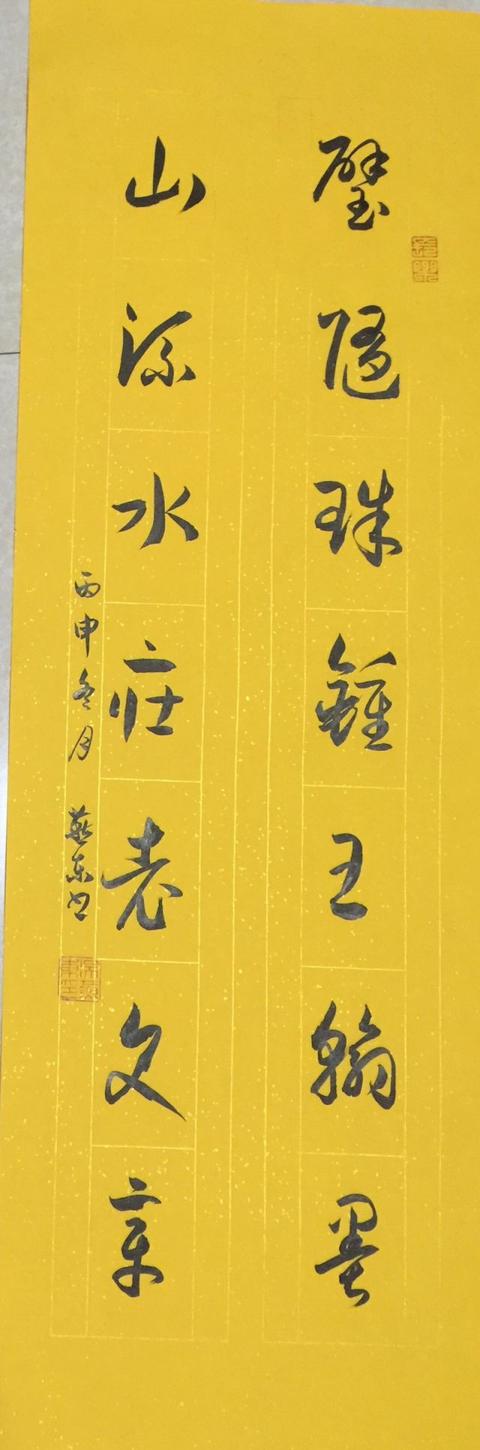 璧隨珠鍾王翰墨
山流水莊老文章
丙申冬月 燕东书